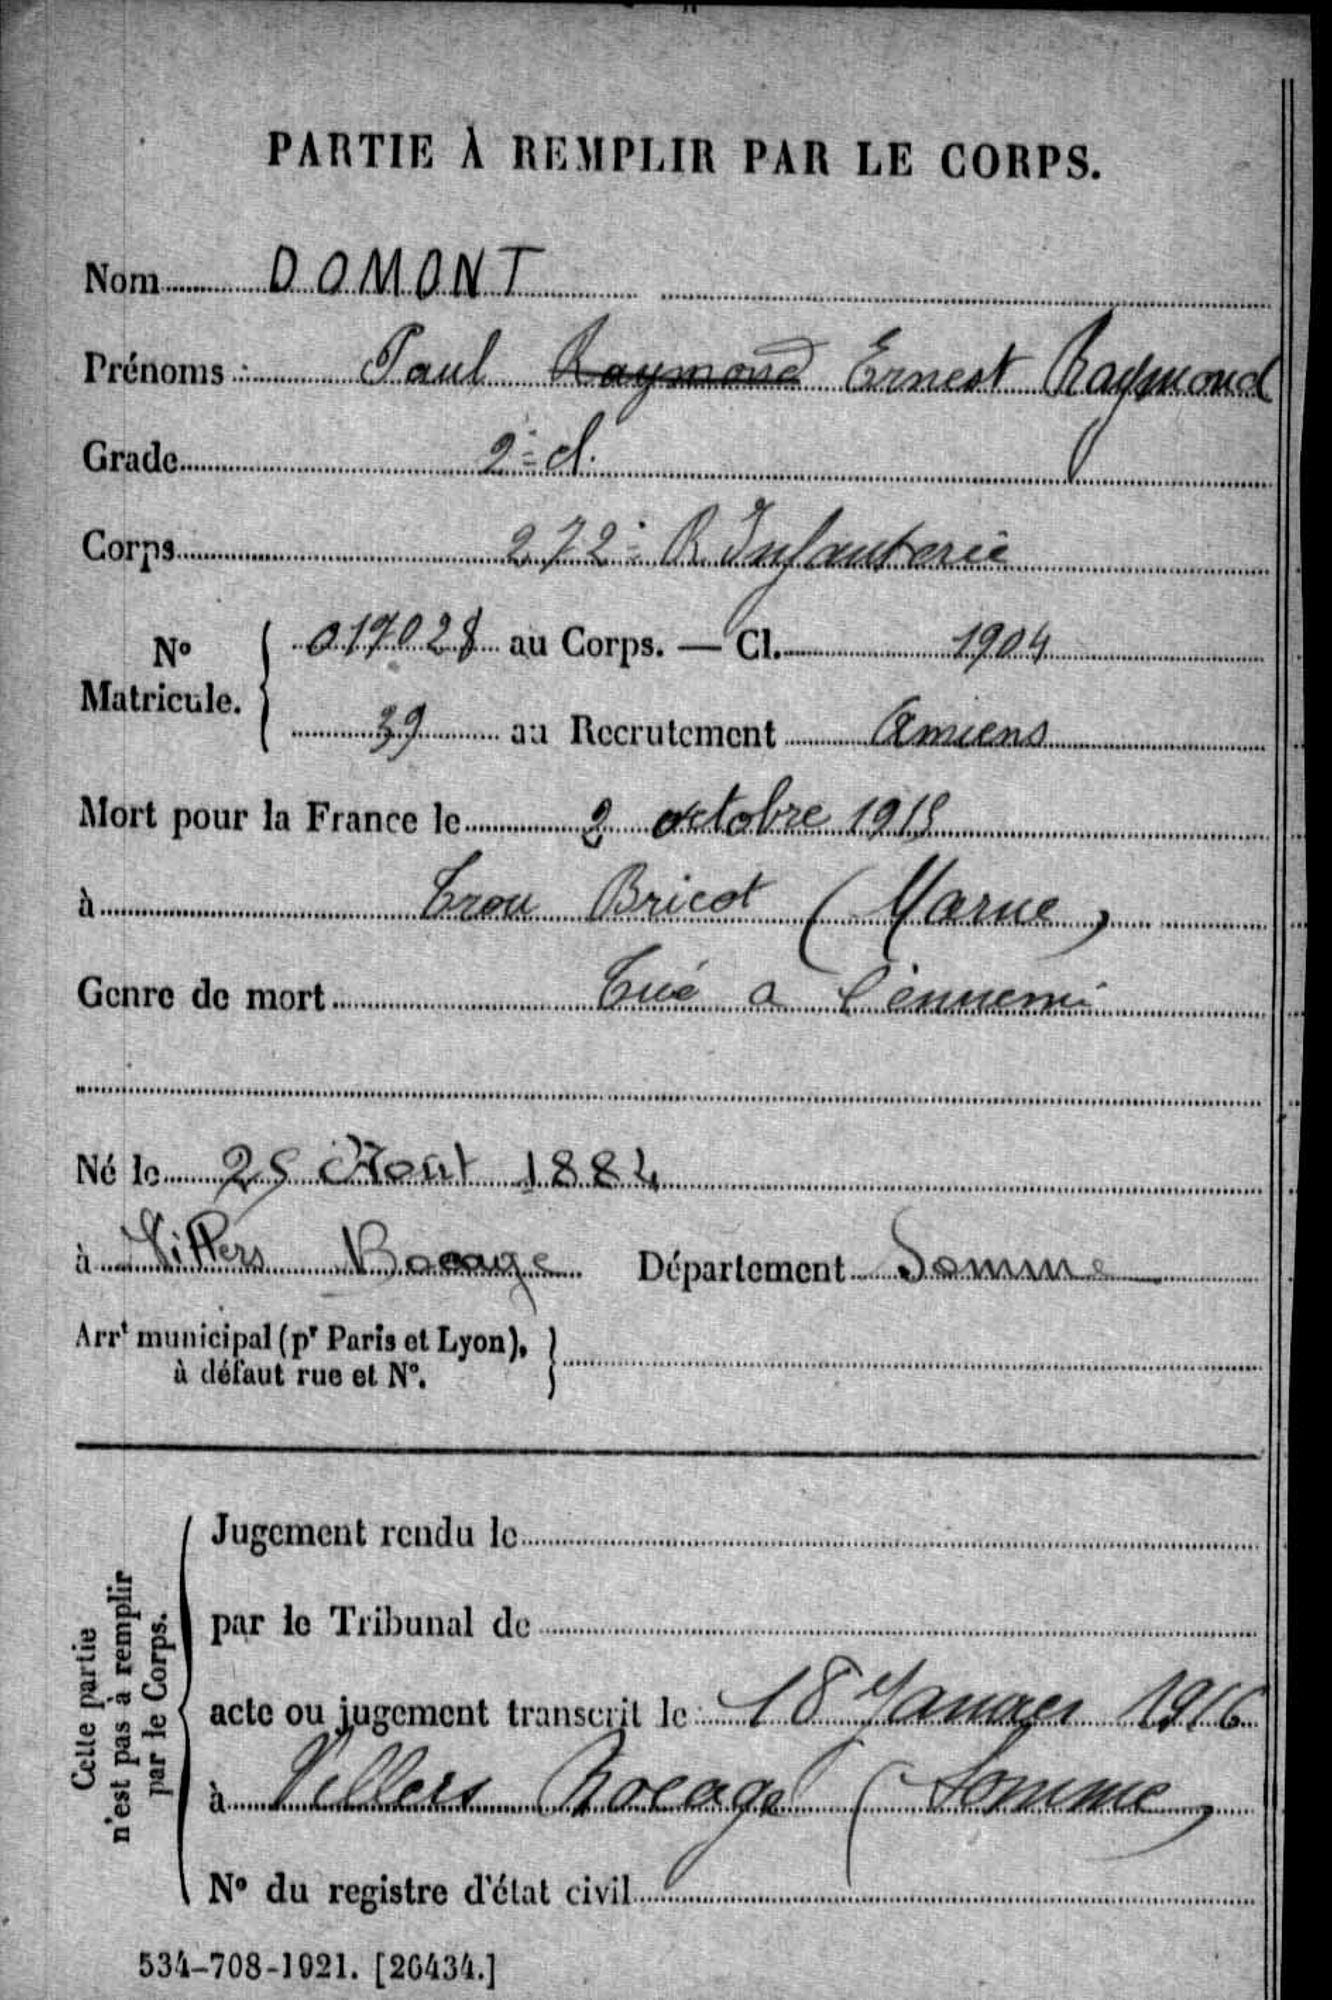 PARTIE À REMPLIR PAR LE CORPS.
Nom DOMONT
Prénoms : Paul Raymond Ernest Raymond
Grade 2e cl.
Corps 272e R Infanterie
No Matricule. { 017028 au Corps. — Cl. 1904
39 au Recrutement Amiens
Mort pour la France le 2 octobre 1915
à Trou Bricot (Marne)
Genre de mort Tué a l'ennemi
Né le 25 Aout 1884
à Villers Bocage Département Somme
Arrt municipal (pr Paris et Lyon), }
à défaut rue et No.
Cette partie
n'est pas à remplir
par le Corps.
Jugement rendu le
par le Tribunal de
acte ou jugement transcrit le 18 Janvier 1916
à Villers Bocage (Somme)
No du registre d'état civil
534-708-1921. [26434.]